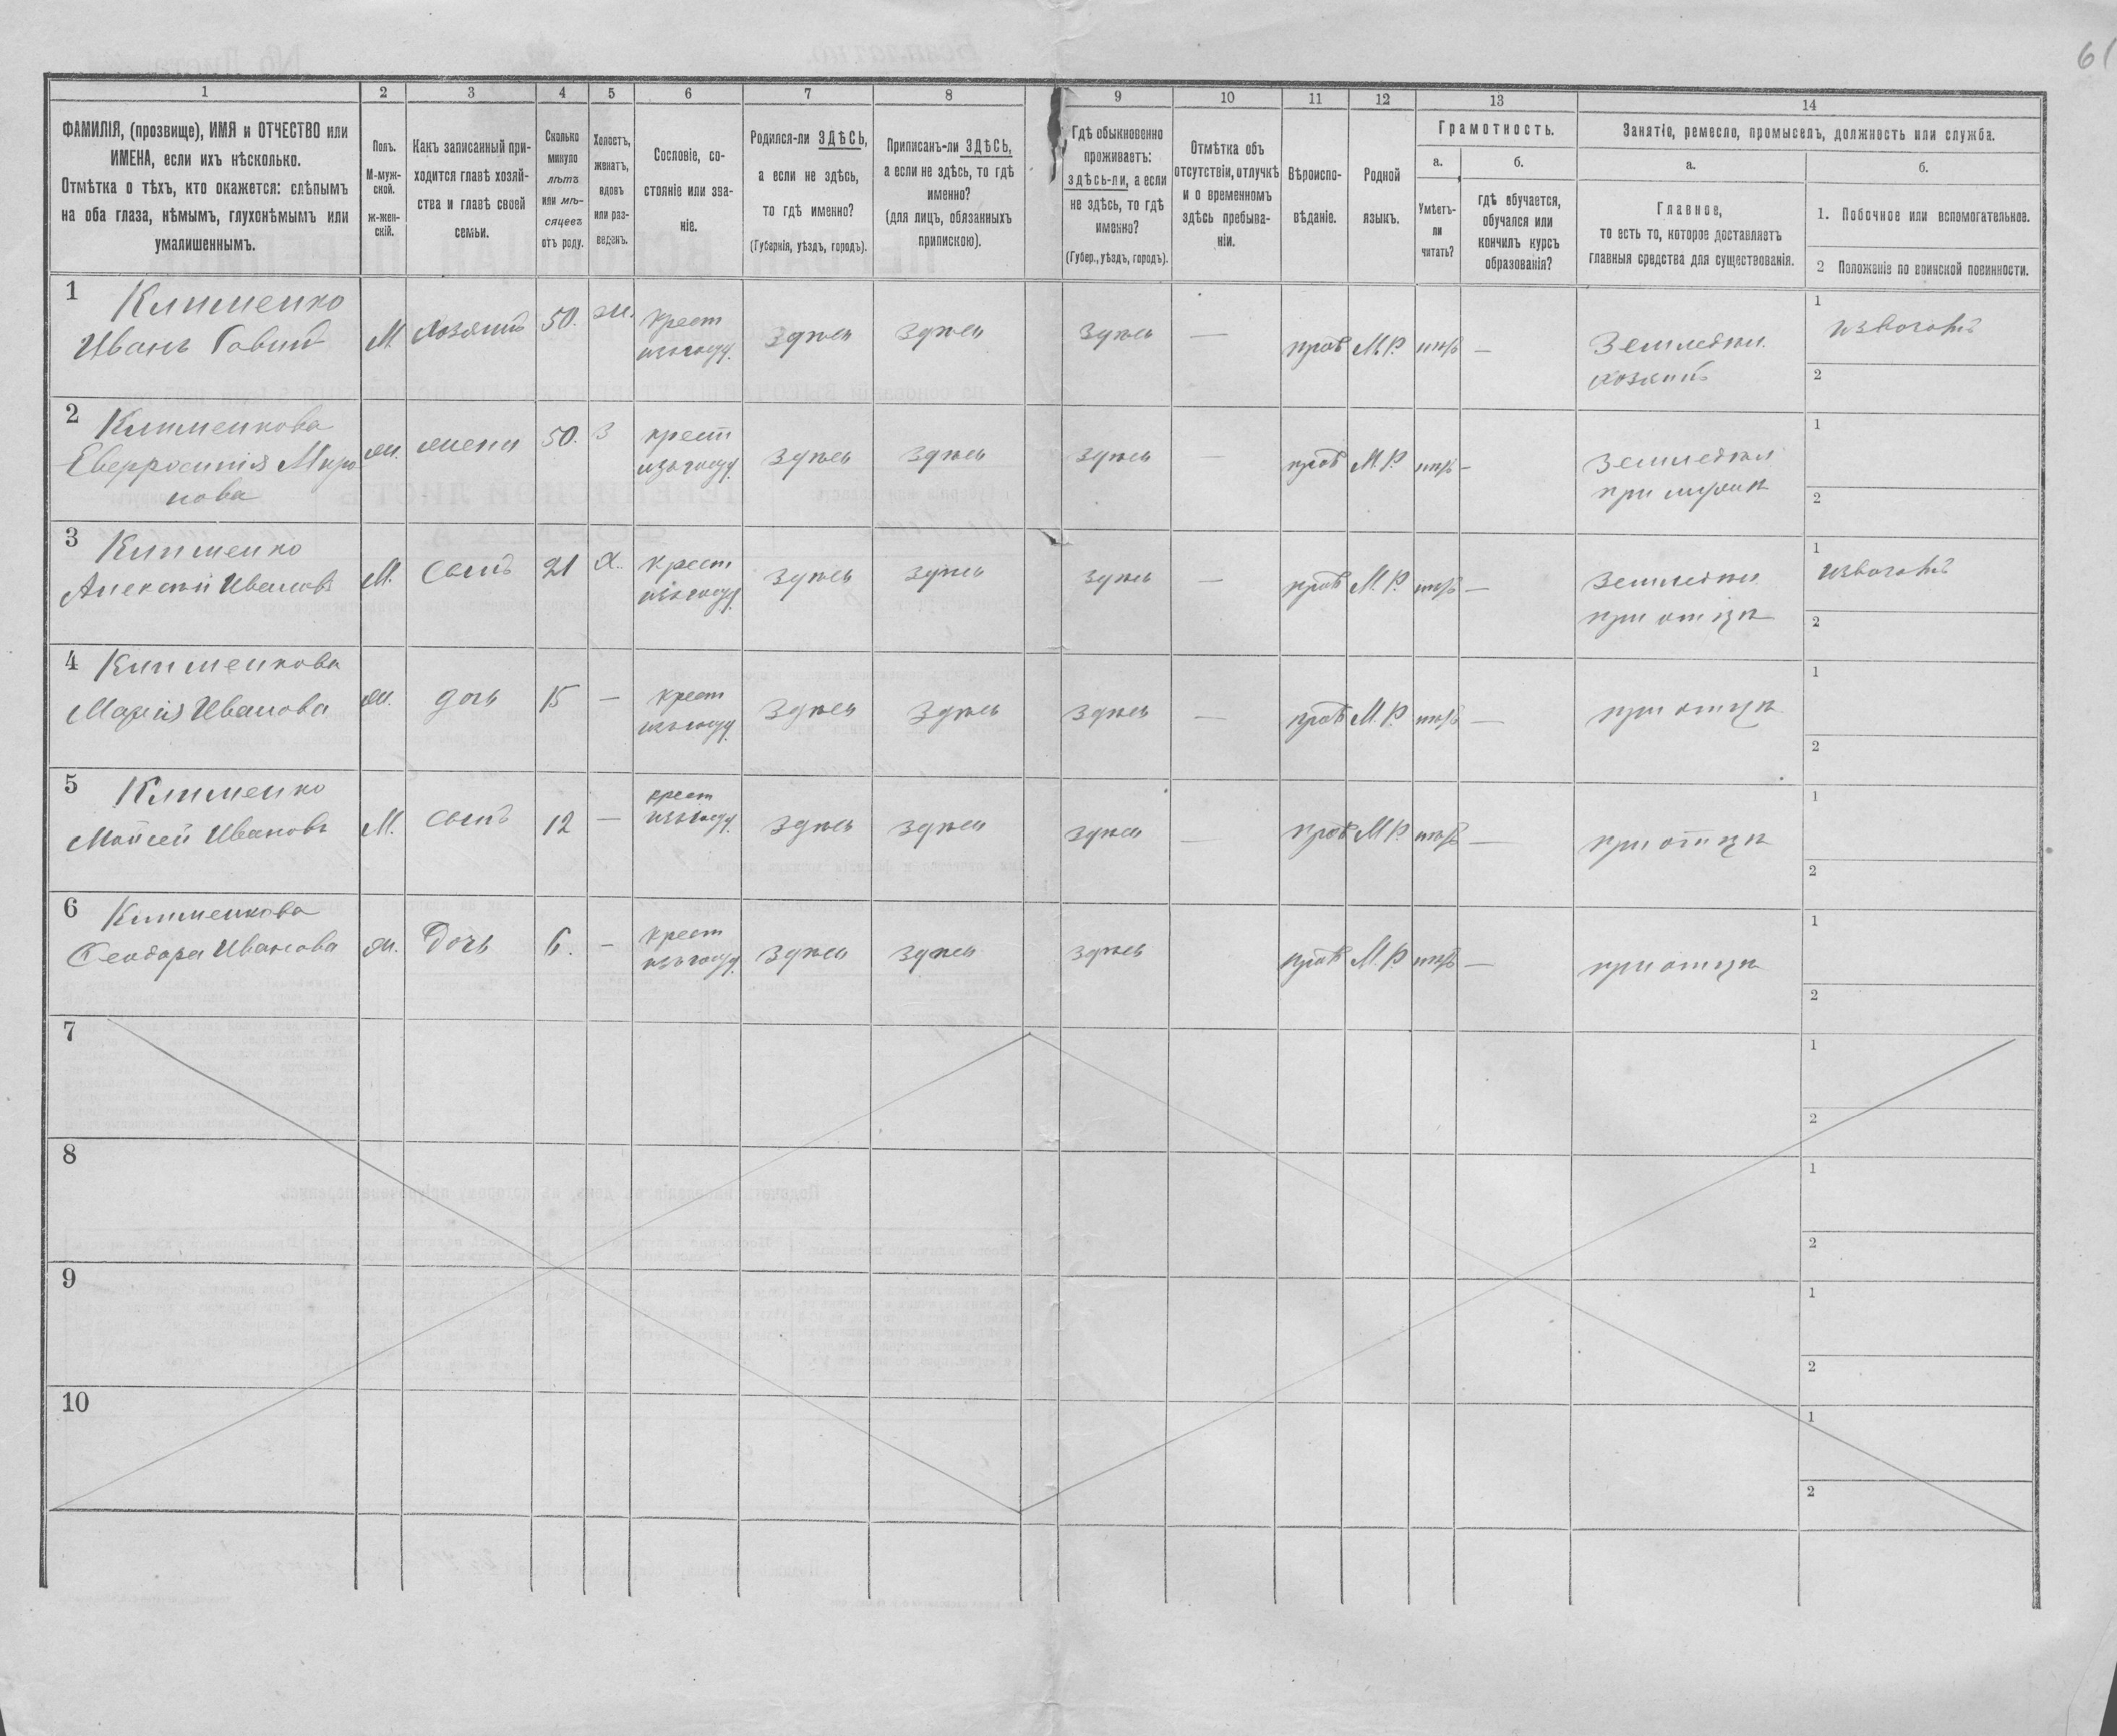 61
1 2 3 4 5 6 7 8 9 10 11 12 13 14
ФАМИЛІЯ, (прозвище), ИМЯ и ОТЧЕСТВО или
ИМЕНА, если ихъ нѣсколько.
Отмѣтка о тѣхъ, кто окажется: слѣпымъ
на оба глаза, нѣмымъ, глухонѣмымъ или
умалишеннымъ.
Полъ.
М-муж-
ской.
ж-жен-
скій.
Какъ записанный при-
ходится главѣ хозяй-
ства и главѣ своей
семьи.
Сколько
минуло
лѣтъ
или мѣ-
сяцевъ
отъ роду.
Холостъ,
женатъ,
вдовъ
или раз-
веденъ.
Сословіе, со-
стояніе или зва-
ніе.
Родился-ли ЗДѢСЬ,
а если не здѣсь,
то гдѣ именно?
(Губернія, уѣздъ, городъ).
Приписанъ-ли ЗДѢСЬ,
а если не здѣсь, то гдѣ
именно?
(для лицъ, обязанныхъ
припискою).
Гдѣ обыкновенно
проживаетъ:
здѣсь-ли, а если
не здѣсь, то гдѣ
именно?
(Губер., уѣздъ, городъ).
Отмѣтка объ
отсутствіи, отлучкѣ
и о временномъ
здѣсь пребыва-
ніи.
Вѣроиспо-
вѣданіе.
Родной
языкъ.
Грамотность.
а.
Умѣетъ-
ли
читать?
б.
гдѣ обучается,
обучался или
кончилъ курсъ
образованія?
Занятіе, ремесло, промыселъ, должность или служба.
а.
Главное,
то есть то, которое доставляетъ
главныя средства для существованія.
б.
1. Побочное или вспомогательное.
2 Положеніе по воинской повинности.
1 Клименко
Иванъ
М. хозяинъ 50. ж. крест
здѣсь здѣсь здѣсь — прав М.Р. —
Земледѣл.
хозяинъ
1
извозъ
2
2 Клименкова
Мирo
нова
ж. жена 50. З крест
здѣсь здѣсь здѣсь — прав М.Р. —
земледѣл
при мужѣ
1
2
3 Клименко
Алексѣй Ивановъ
М. сынъ 21 х. крест
здѣсь здѣсь здѣсь — прав М.Р. —
земледѣл
при отцѣ
1
извозъ
2
4 Клименкова
Марія Иванова
ж. дочь 15 — крест
здѣсь здѣсь здѣсь — прав М.Р. —
при отцѣ
1
2
5 Клименко
Мойсей Ивановъ
М. сынъ 12 — крест
здѣсь здѣсь здѣсь — прав М.Р. —
при отцѣ
1
2
6 Клименкова
Феодора Иванова
ж. Дочь 6. — крест
здѣсь здѣсь здѣсь прав М.Р. —
при отцѣ
1
2
7
1
2
8
1
2
9
1
2
10
1
2